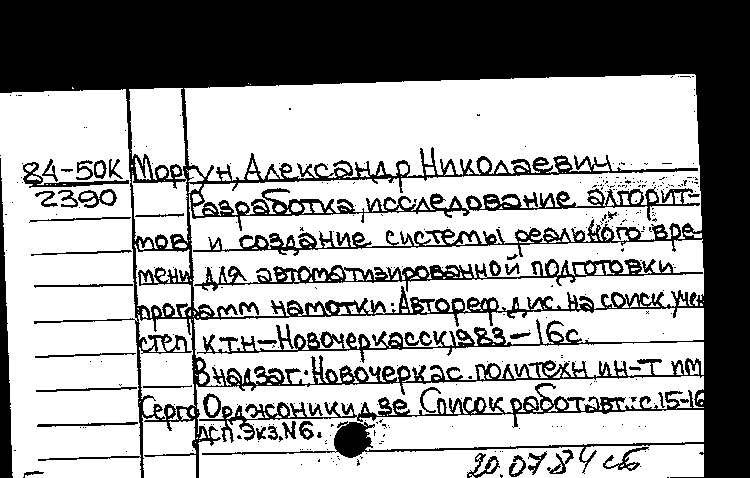 84-50К Моргун, Александр Николаевич.
2390 Разработка, исследование алгорит-
мов и создание системы реального вре-
мени для автоматизированной подготовки
программ намотки: Автореф. дис. на соиск. учен
степ к.т.н - Новочеркасск, 1983 - 16с.
В надзаг.: Новочеркас. политехн. ин-т им
Серго Орджоникидзе. Список работ авт.: с. 15-16
ДСП. Экз. N6.
20.07.84 сб